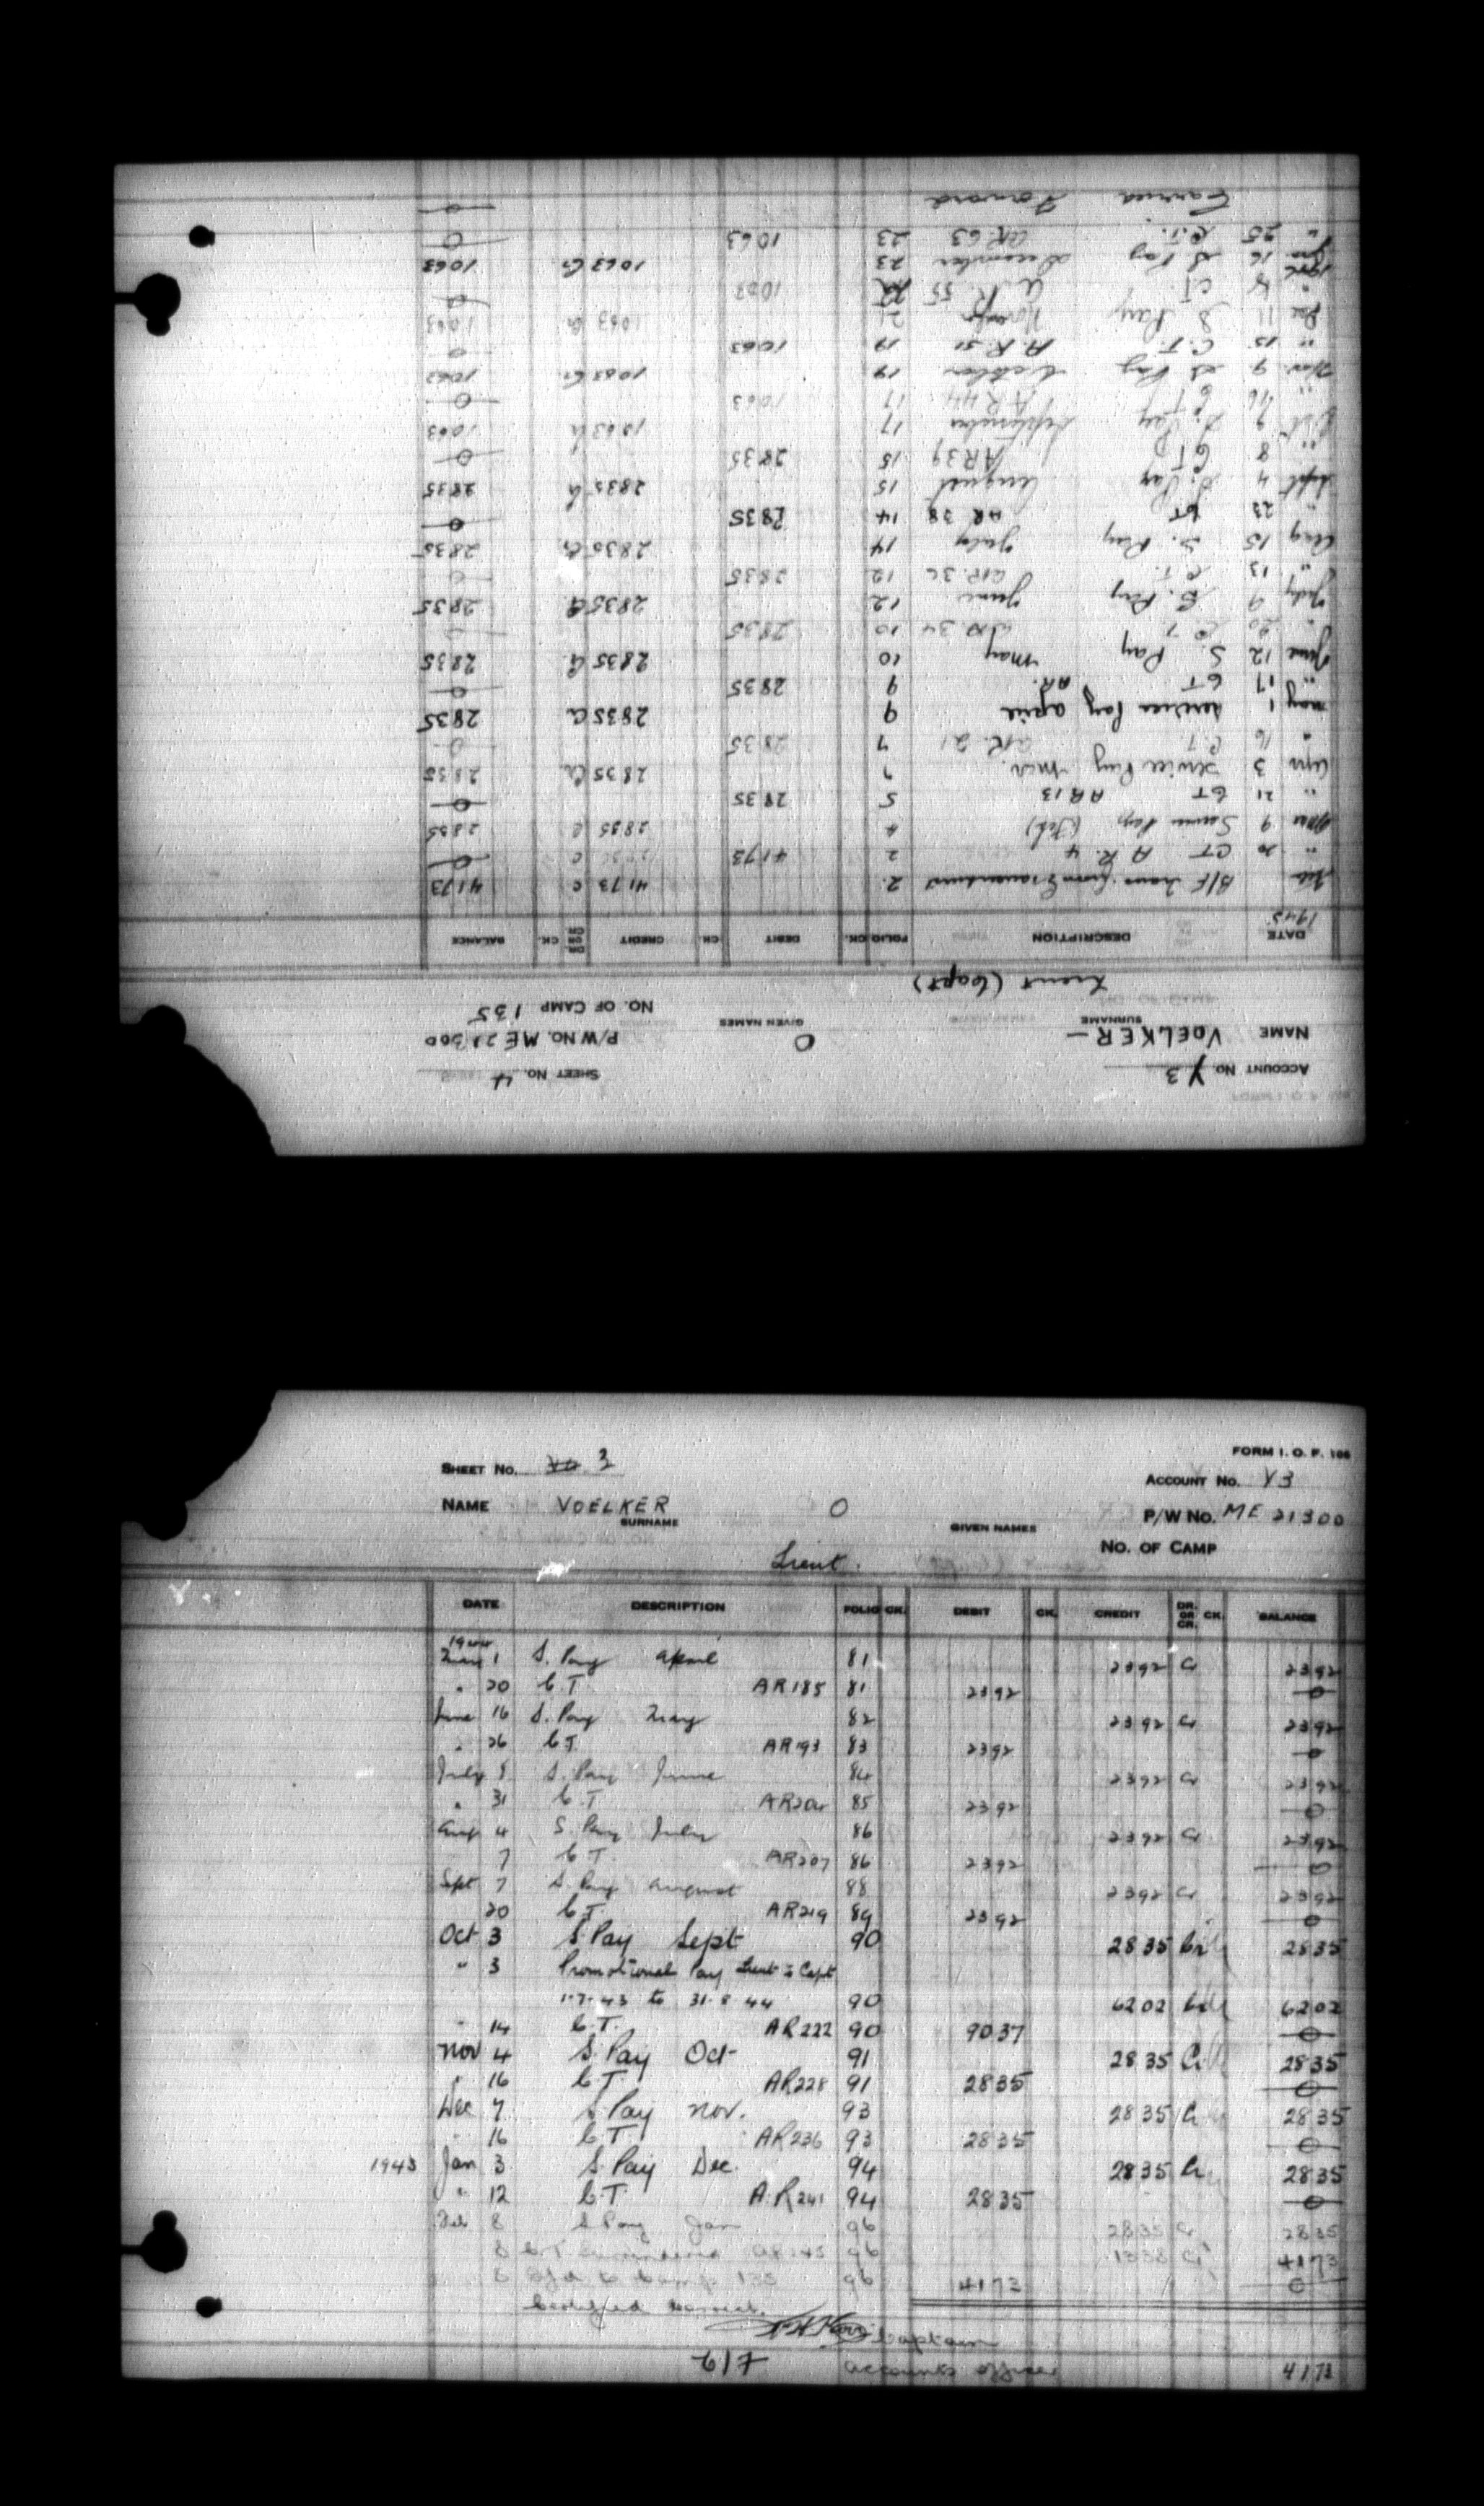 ACCOUNT NO. Y3
SHEET NO. 4
NAME VOELKER — O
SURNAME GIVEN NAMES
P/W NO. ME 21300
Lieut (Capt)
NO. OF CAMP 135
DATE DESCRIPTION FOLIO CK. DEBIT CK. CREDIT DR. OR CR. CK. BALANCE
1945
Feb B/F Trans. from Gravenhurst 2 4173 C 4173
" 20 CT A R. 4 2 4173 0
Mar 9 Service Pay (Feb) 4 2835 C 2835
" 21 CT AR 13 5 2835 0
Apr 3 Service Pay Mch. 7 2835 Cr 2835
" 16 C.T. A.R. 21 7 2835 0
May 1 Service Pay April 9 2835 Cr 2835
" 17 CT AR. 9 2835 0
June 12 S. Pay May 10 2835 Cr 2835
" 20 C.T. A.R. 34 10 2835 0
July 9 S. Pay June 12 2835 Cr 2835
" 13 C.T. A.R. 36 12 2835 0
Aug 15 S. Pay July 14 2835 Cr 2835
" 23 CT AR 38 14 2835 0
Sept 4 S. Pay August 15 2835 Cr 2835
" 8 CT AR 39 15 2835 0
Oct 9 S. Pay September 17 1063 Cr 1063
" 16 CT AR 44 17 1063 0
Nov. 9 S Pay October 19 1063 Cr 1063
" 15 C.T. A.R. 51 19 1063 0
Dec 11 S Pay November 21 1063 Cr 1063
" 18 C.T. A.R. 55 22 1063 0
1946
Jan 16 S Pay December 23 1063 Cr 1063
" 25 C.T. AR. 63 23 1063 0
Carried Forward 0
FORM I. O. P. 106
SHEET NO. 3
ACCOUNT NO. Y3
NAME VOELKER O
SURNAME GIVEN NAMES
P/W NO. ME 21300
NO. OF CAMP
Lieut.
DATE DESCRIPTION FOLIO CK. DEBIT CK. CREDIT DR. OR CR. CK. BALANCE
1944
May 1 S. Pay April 81 2392 Cr 2392
" 20 C.T. AR185 81 2392 0
June 16 S. Pay May 82 2392 Cr 2392
" 26 C.T. AR193 83 2392 0
July 8 S. Pay June 84 2392 Cr 2392
" 31 C.T. 85 2392 0
Aug 4 S. Pay July 86 2392 Cr 2392
7 C.T. AR207 86 2392 0
Sept 7 S. Pay August 88 2392 Cr 2392
20 C.T. AR219 89 2392 0
Oct 3 S Pay Sept 90 2835 Cr 2835
" 3 Promotional Pay Lieut to Capt
1.7.43 to 31.8.44 90 6202 Cr 6202
" 14 C.T. AR222 90 9037 0
Nov 4 S. Pay Oct 91 2835 Cr 2835
" 16 C.T. AR228 91 2835 0
Dec 7 S Pay Nov. 93 2835 Cr 2835
" 16 C.T. AR236 93 2835 0
1943 Jan 3 S. Pay Dec. 94 2835 Cr 2835
" 12 C.T. A.R241 94 2835 0
Feb 8 S Pay Jan 96 2835 Cr 2835
8 C.T. AR245 96 1338 Cr 4173
8 to Camp 135 96 4173 0
Certified Correct.
Captain
6/7 Accounts Officer 4173